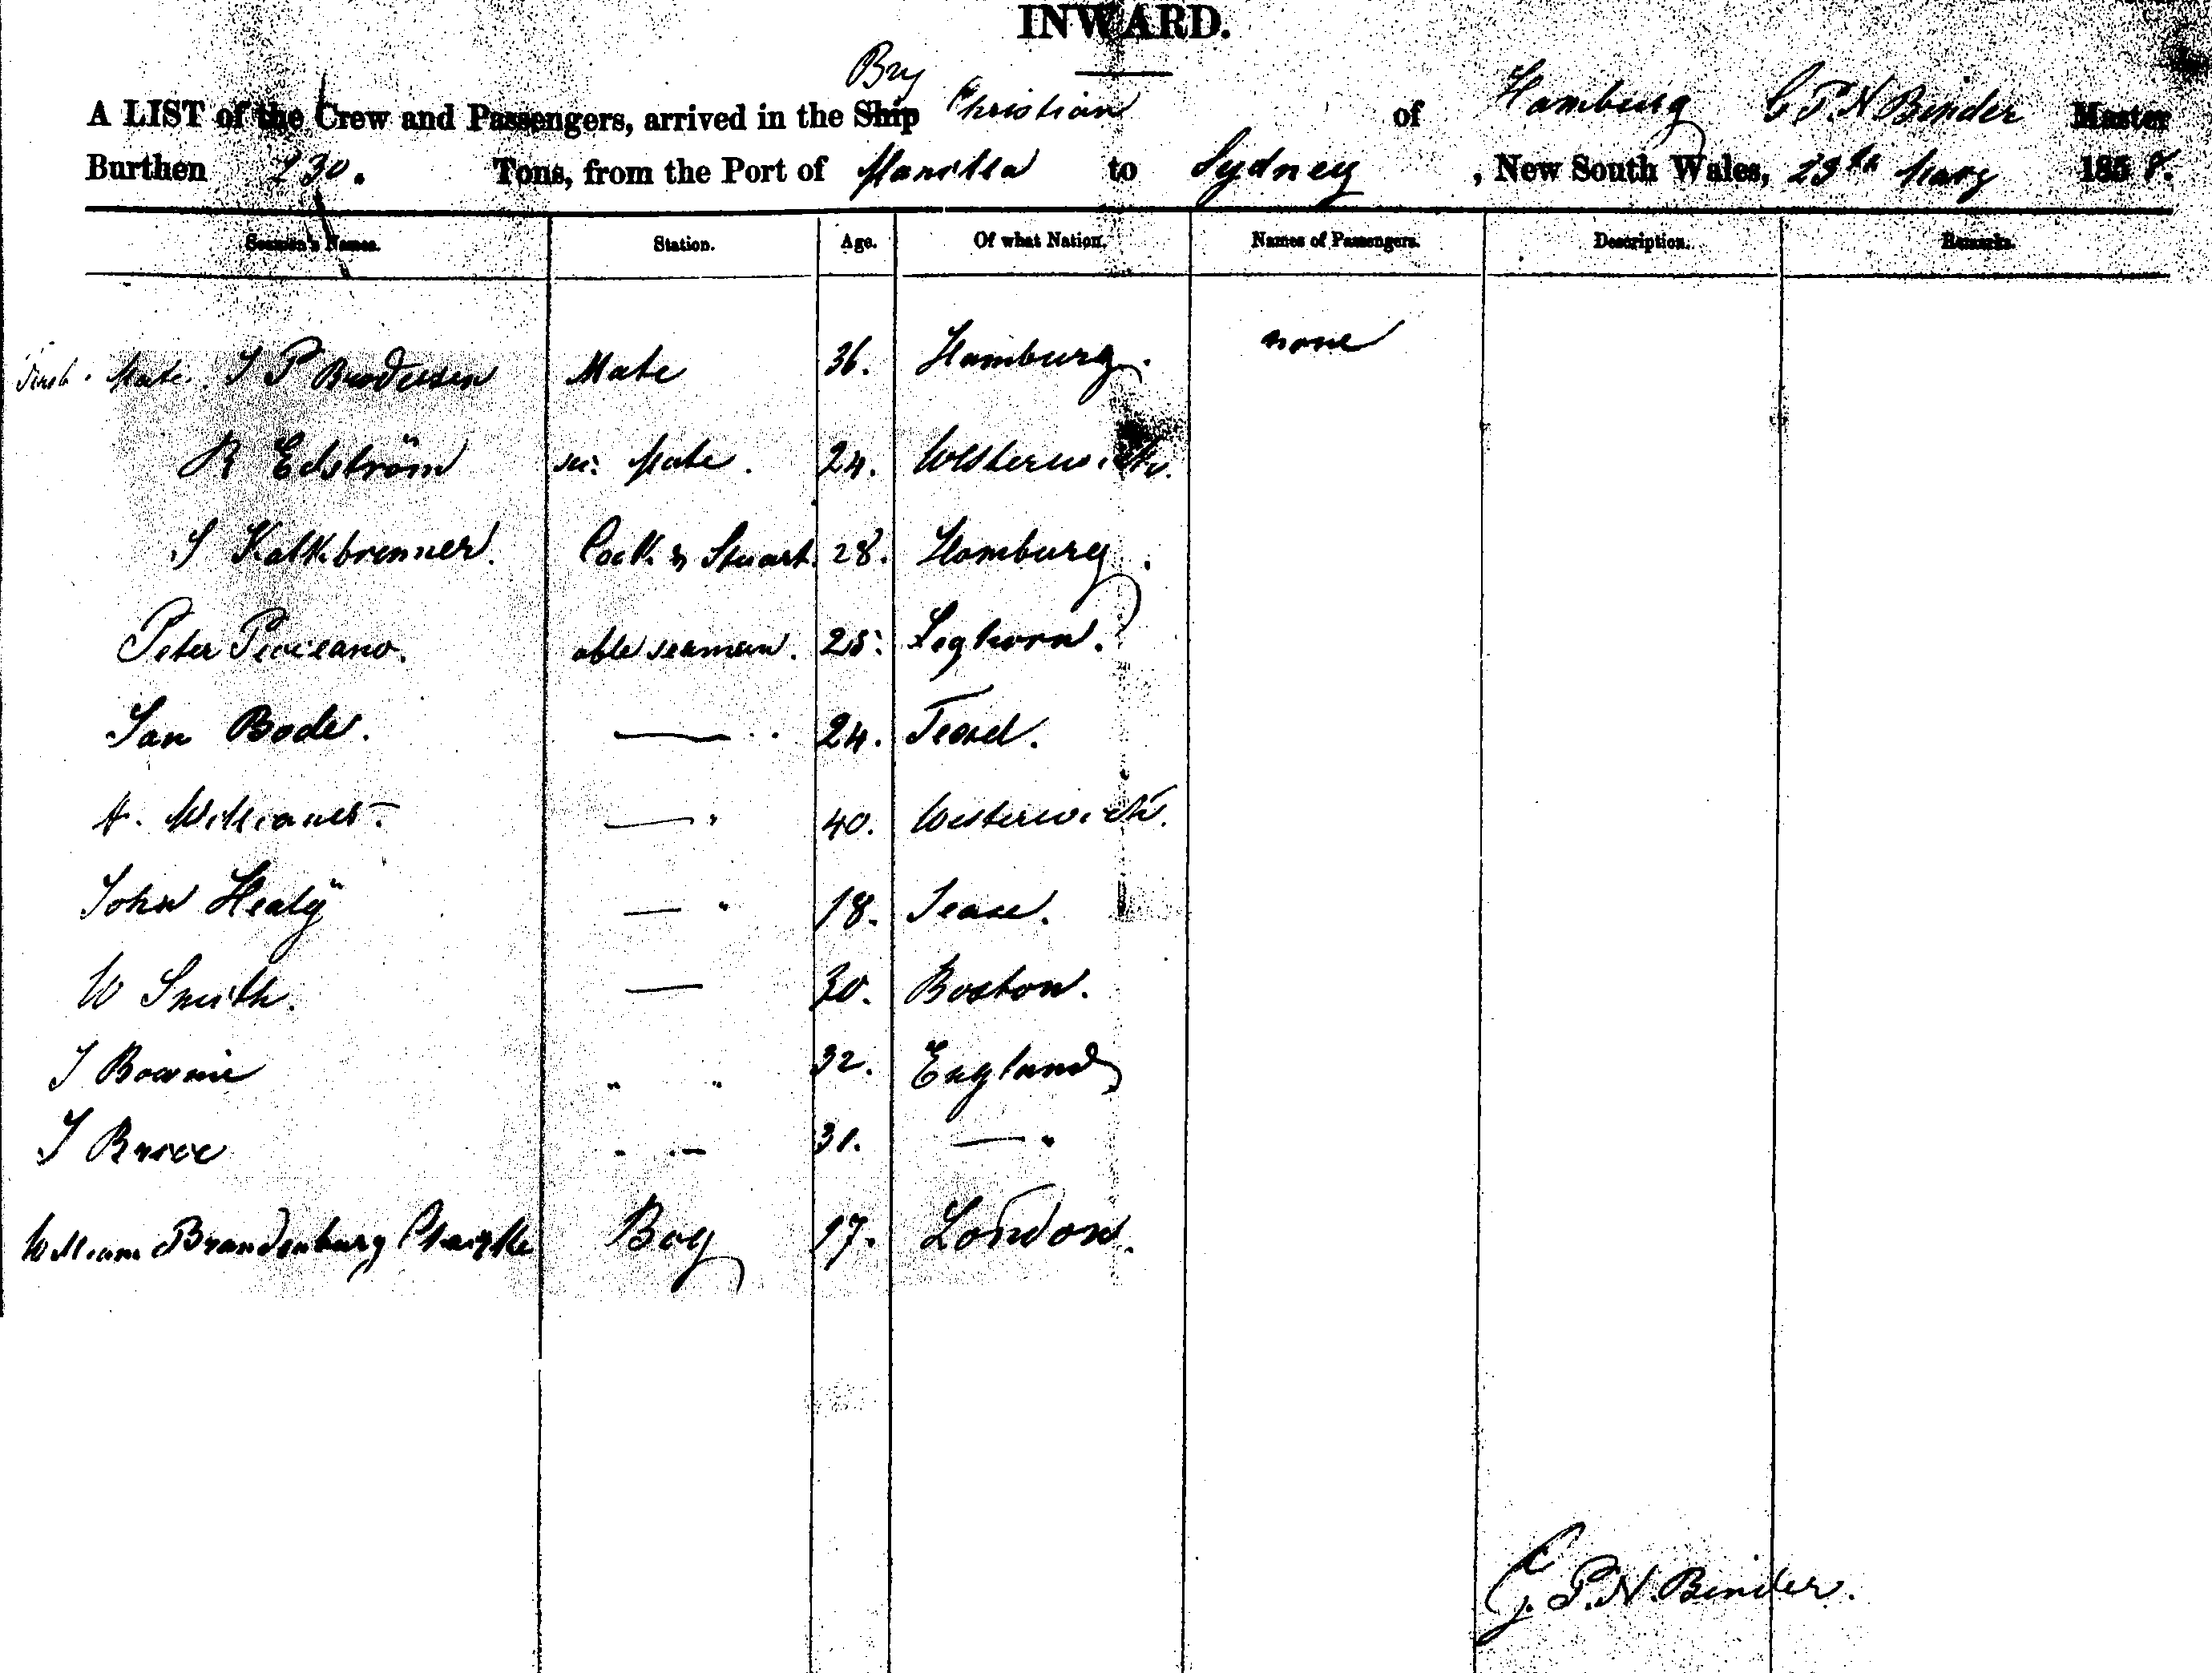 INWARD.
Brg
A LIST of the Crew and Passengers, arrived in the Ship Christian of Hamburg C P. N Binder Master
Burthen 230. Tons, from the Port of Manilla to Sydney, New South Wales, 29th May 1858.
Seamen's Names. Station. Age. Of what Nation. Names of Passengers. Description. Remarks.
First Mate. J P Brodersen Mate 36. Hamburg. none
R Edström Mate. 24. Westerwick.
J Kalkbrenner. Cock & Stuart. 28. Hamburg.
Peter able seaman. 25. Leghorn.
Jan Bode. 24. Texel.
A. Williams. 40. Westerwick.
John Healÿ " 18.
W Smith. 30. Boston.
J " " 32. England
J Bruce 31. "
William Brandenburg Boy 17. London.
C. P. N. Binder.